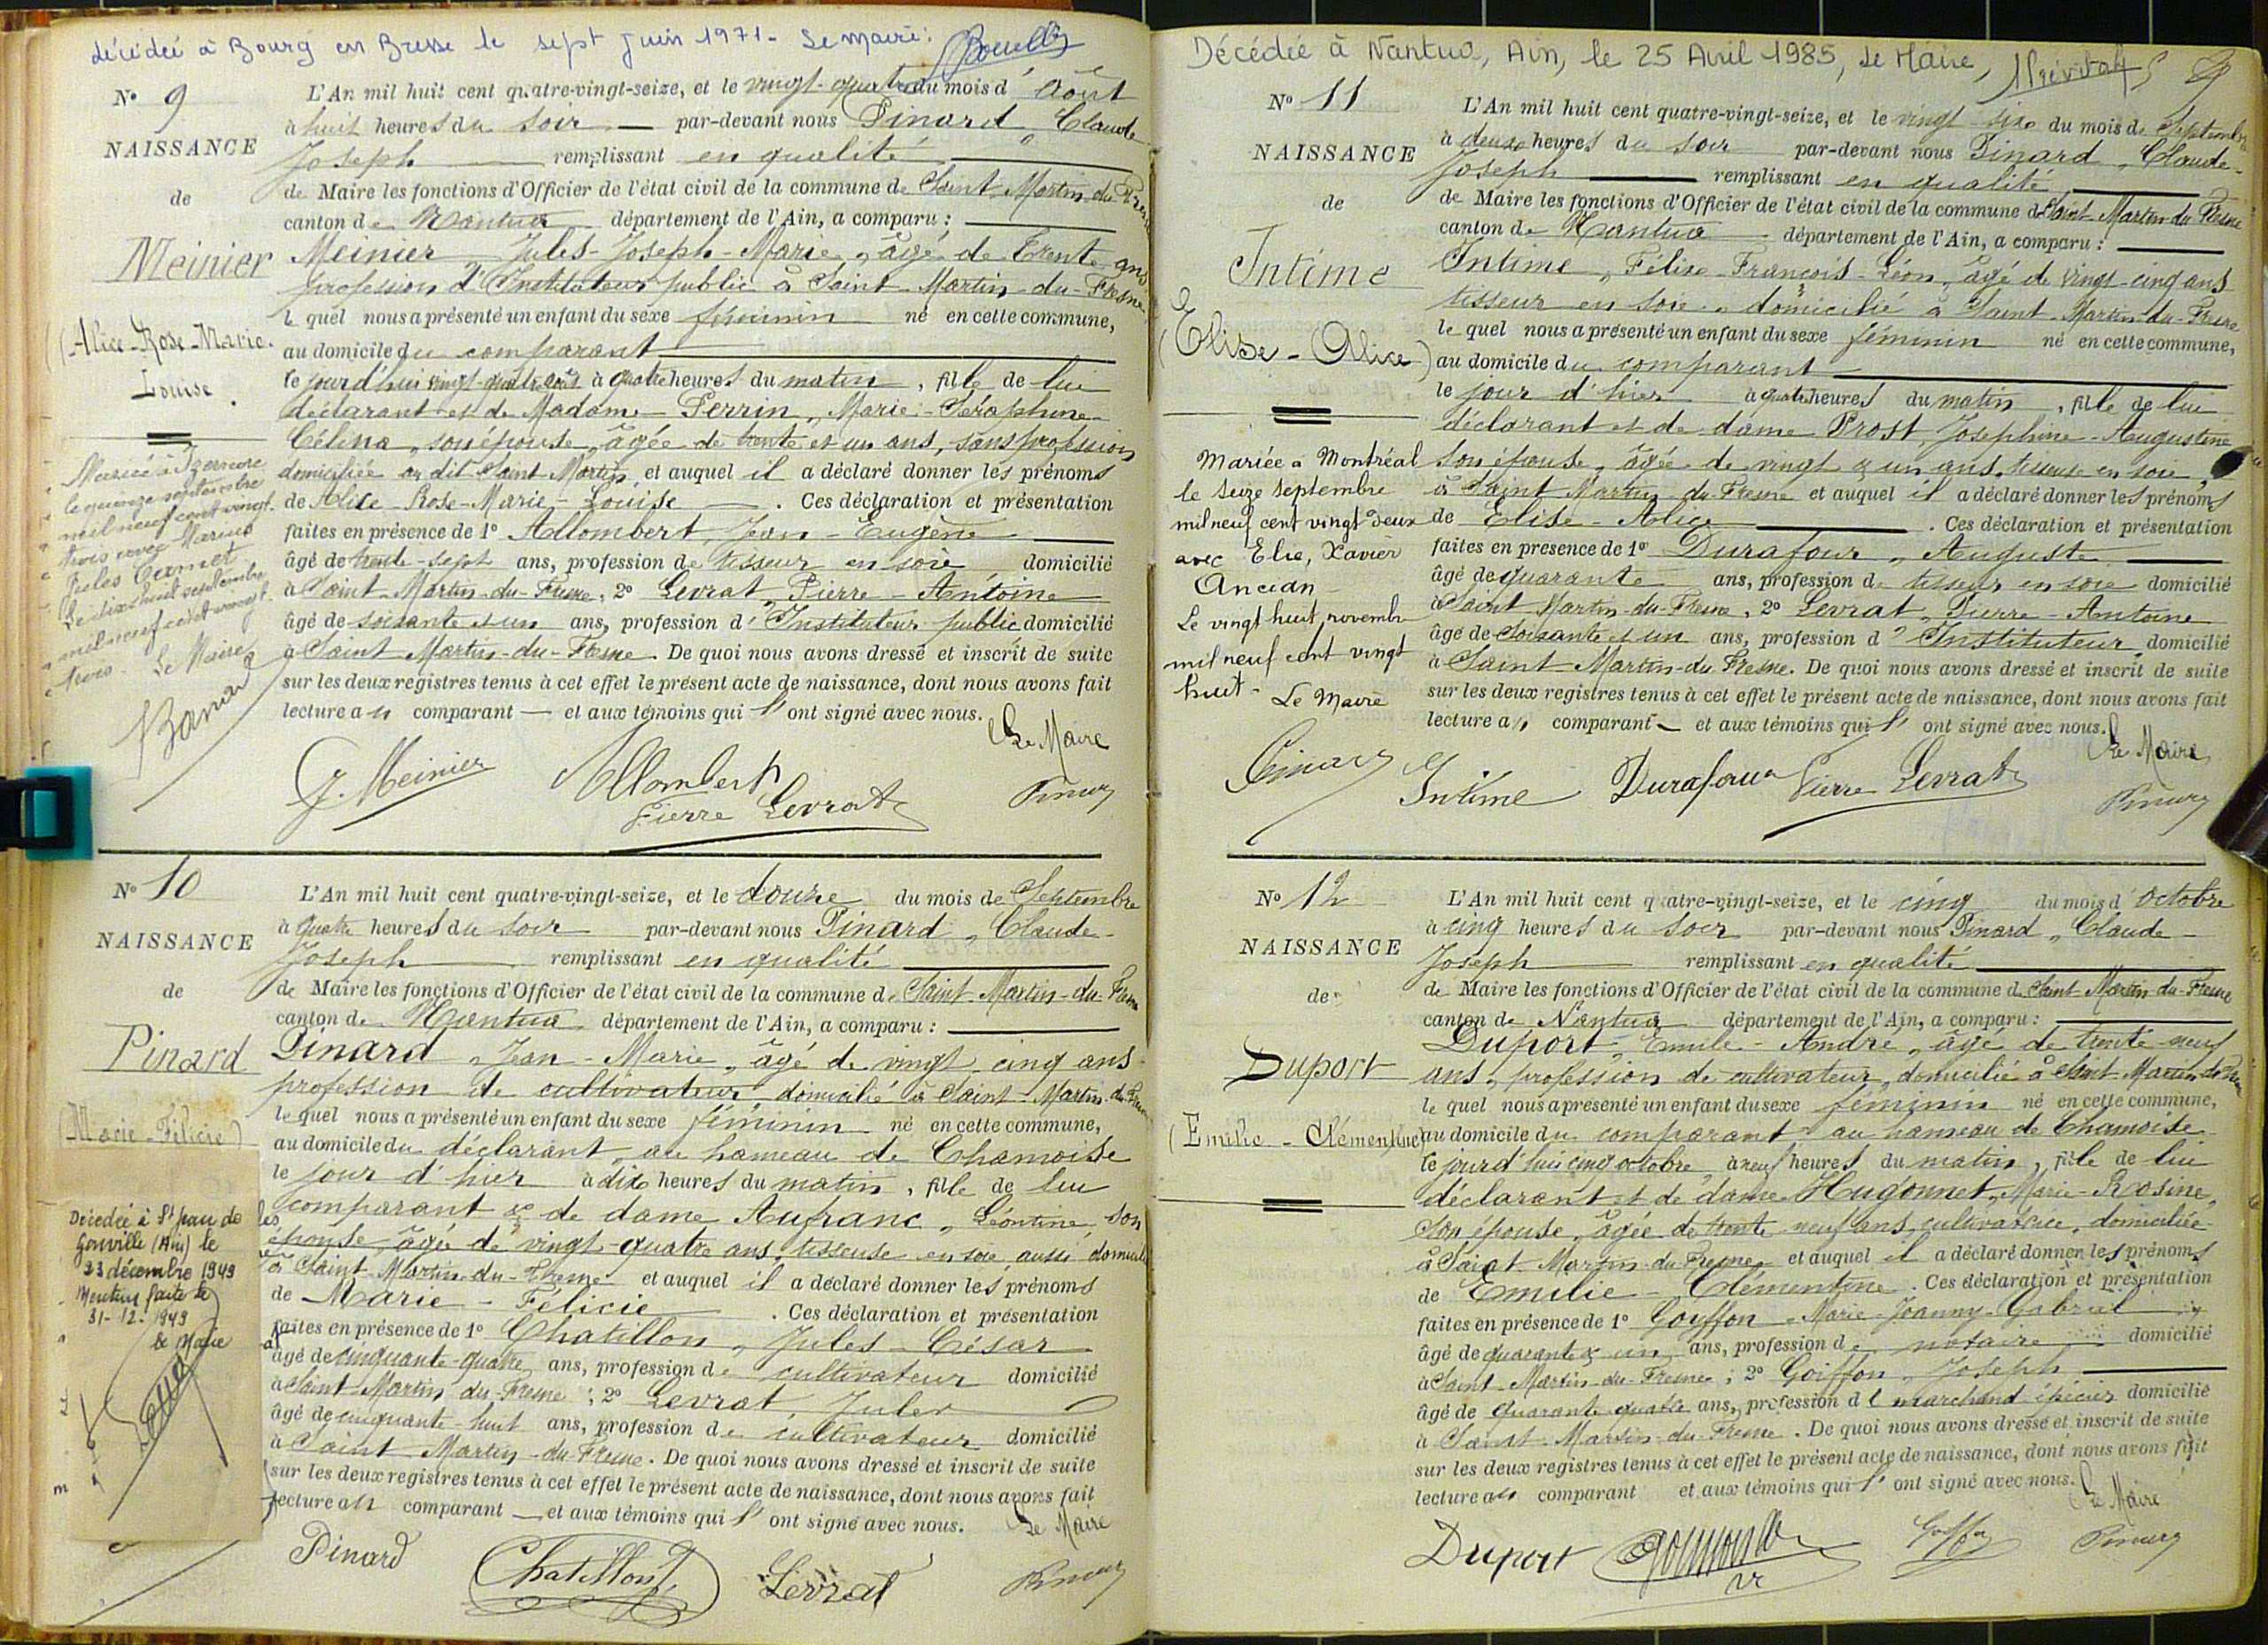 décédée à Bourg en Bresse le sept Juin 1971 - Le Maire:
N° 9
NAISSANCE
de
Meinier
(Alice-Rose-Marie-
Louise
Mariée à Izernore
le quinze septembre
mil neuf cent vingt
trois avec Marius
Jules Carmet
Le dix huit septembre
mil neuf cent vingt
trois - Le Maire
L'An mil huit cent quatre-vingt-seize, et le vingt-quatre du mois d' Août
à huit heures du soir par-devant nous Pinard, Claude
Joseph remplissant en qualité
de Maire les fonctions d'Officier de l'état civil de la commune de Saint-Martin-du-Fresne
canton de Nantua département de l'Ain, a comparu :
Meinier, Jules-Joseph-Marie, âgé de trente ans
profession d'Instituteur public à Saint-Martin-du-Fresne
le quel nous a présenté un enfant du sexe féminin né en cette commune,
au domicile du comparant
le jourd'hui vingt-quatre août à quatre heures du matin, fille de lui
déclarant et de Madame Perrin, Marie-Séraphine-
Célina, son épouse, âgée de trente et un ans, sans profession
domiciliée au dit Saint Martin, et auquel il a déclaré donner les prénoms
de Alice-Rose-Marie-Louise . Ces déclaration et présentation
faites en présence de 1° Allombert, Jean-Eugène
âgé de trente-sept ans, profession de tisseur en soie domicilié
à Saint-Martin-du-Fresne, 2° Levrat, Pierre-Antoine
âgé de soixante et un ans, profession d' Instituteur public domicilié
à Saint Martin-du-Fresne. De quoi nous avons dressé et inscrit de suite
sur les deux registres tenus à cet effet le présent acte de naissance, dont nous avons fait
lecture au comparant et aux témoins qui l' ont signé avec nous.
Le Maire
J. Meinier Allombert Pierre Levrat Pinard
N° 10
NAISSANCE
de
Pinard
(Marie-Félicie)
Décédée à St Jean de
Gonville (Ain) le
23 décembre 1949
Mention faite le
31-12-1949
Le Maire
L'An mil huit cent quatre-vingt-seize, et le douze du mois de Septembre
à quatre heures du soir par-devant nous Pinard, Claude-
Joseph remplissant en qualité
de Maire les fonctions d'Officier de l'état civil de la commune de Saint-Martin-du-Fresne
canton de Nantua département de l'Ain, a comparu :
Pinard, Jean-Marie, âgé de vingt-cinq ans
profession de cultivateur domicilié à Saint-Martin-du-Fresne
le quel nous a présenté un enfant du sexe féminin né en cette commune,
au domicile du déclarant, au hameau de Chamoise
le jour d'hier à dix heures du matin, fille de lui
comparant & de dame Aufranc, Léontine son
épouse, âgée de vingt-quatre ans, tisseuse en soie, aussi domiciliée
à Saint-Martin-du-Fresne et auquel il a déclaré donner les prénoms
de Marie-Félicie . Ces déclaration et présentation
faites en présence de 1° Chatillon, Jules-César
âgé de cinquante-quatre ans, profession de cultivateur domicilié
à Saint Martin du-Fresne ; 2° Levrat, Jules
âgé de cinquante-huit ans, profession de cultivateur domicilié
à Saint Martin-du-Fresne. De quoi nous avons dressé et inscrit de suite
sur les deux registres tenus à cet effet le présent acte de naissance, dont nous avons fait
lecture au comparant et aux témoins qui l' ont signé avec nous.
Le Maire
Pinard Chatillon Levrat Pinard
Décédée à Nantua, Ain, le 25 Avril 1985, Le Maire,
N° 11
NAISSANCE
de
Intime
(Elise-Alice)
Mariée à Montréal
le seize septembre
mil neuf cent vingt deux
avec Elie, Xavier
Ancian
Le vingt huit novembre
mil neuf cent vingt
huit - Le Maire
L'An mil huit cent quatre-vingt-seize, et le vingt-six du mois de Septembre
à deux heures du soir par-devant nous Pinard, Claude-
Joseph remplissant en qualité
de Maire les fonctions d'Officier de l'état civil de la commune de Saint-Martin-du-Fresne
canton de Nantua département de l'Ain, a comparu :
Intime, Félix-François-Léon, âgé de vingt-cinq ans
tisseur en soie, domicilié à Saint-Martin-du-Fresne
le quel nous a présenté un enfant du sexe féminin né en cette commune,
au domicile du comparant
le jour d'hier à quatre heures du matin, fille de lui
déclarant et de dame Prost, Joséphine-Augustine
son épouse, âgée de vingt & un ans, tisseuse en soie,
à Saint Martin-du-Fresne et auquel il a déclaré donner les prénoms
de Elise-Alice . Ces déclaration et présentation
faites en présence de 1° Durafour, Auguste
âgé de quarante ans, profession de tisseur en soie domicilié
à Saint Martin-du-Fresne, 2° Levrat, Pierre-Antoine
âgé de soixante et un ans, profession d' Instituteur domicilié
à Saint Martin-du-Fresne. De quoi nous avons dressé et inscrit de suite
sur les deux registres tenus à cet effet le présent acte de naissance, dont nous avons fait
lecture au comparant et aux témoins qui l' ont signé avec nous.
Le Maire
Intime Durafour Pierre Levrat Pinard
N° 12
NAISSANCE
de
Duport
(Emilie-Clémentine)
L'An mil huit cent quatre-vingt-seize, et le cinq du mois d' octobre
à cinq heures du soir par-devant nous Pinard, Claude-
Joseph remplissant en qualité
de Maire les fonctions d'Officier de l'état civil de la commune de Saint Martin-du-Fresne
canton de Nantua département de l'Ain, a comparu :
Duport, Emile-André, âgé de trente-neuf
ans, profession de cultivateur, domicilié à Saint Martin du Fresne
le quel nous a présenté un enfant du sexe féminin né en cette commune,
au domicile du comparant au hameau de Chamoise
le jourd'hui cinq octobre, à neuf heures du matin, fille de lui
déclarant et de dame Hugonnet, Marie-Rosine,
son épouse, âgée de trente neuf ans, cultivatrice, domiciliée
à Saint Martin-du-Fresne, et auquel il a déclaré donner les prénoms
de Emilie-Clémentine . Ces déclaration et présentation
faites en présence de 1° Goiffon, Marie-Joanny-Gabriel
âgé de quarante & un ans, profession de notaire domicilié
à Saint-Martin-du-Fresne ; 2° Goiffon, Joseph
âgé de quarante quatre ans, profession de marchand épicier domicilié
à Saint-Martin-du-Fresne. De quoi nous avons dressé et inscrit de suite
sur les deux registres tenus à cet effet le présent acte de naissance, dont nous avons fait
lecture au comparant et aux témoins qui l' ont signé avec nous.
Le Maire
Duport Pinard